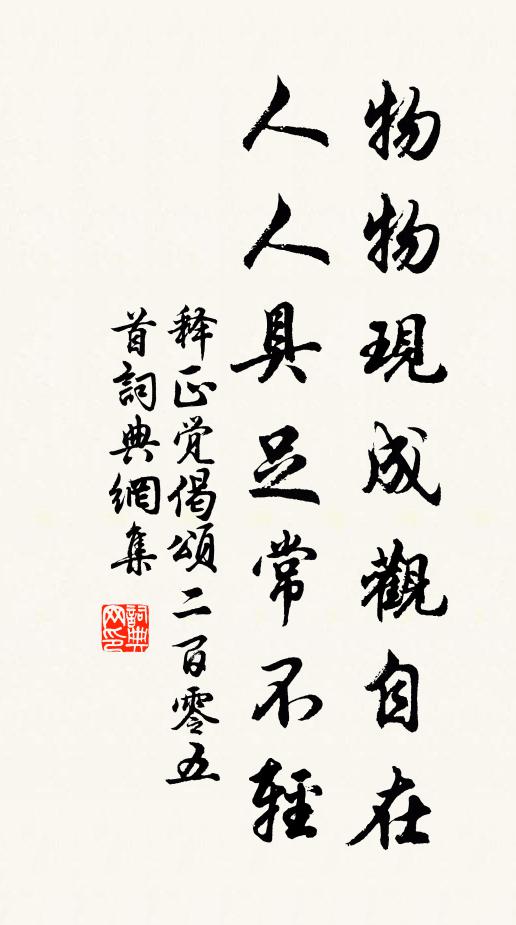 物物現成觀自在
人人具足常不輕
释正觉偈頌二百零五
首詞典網集
詞典
网印